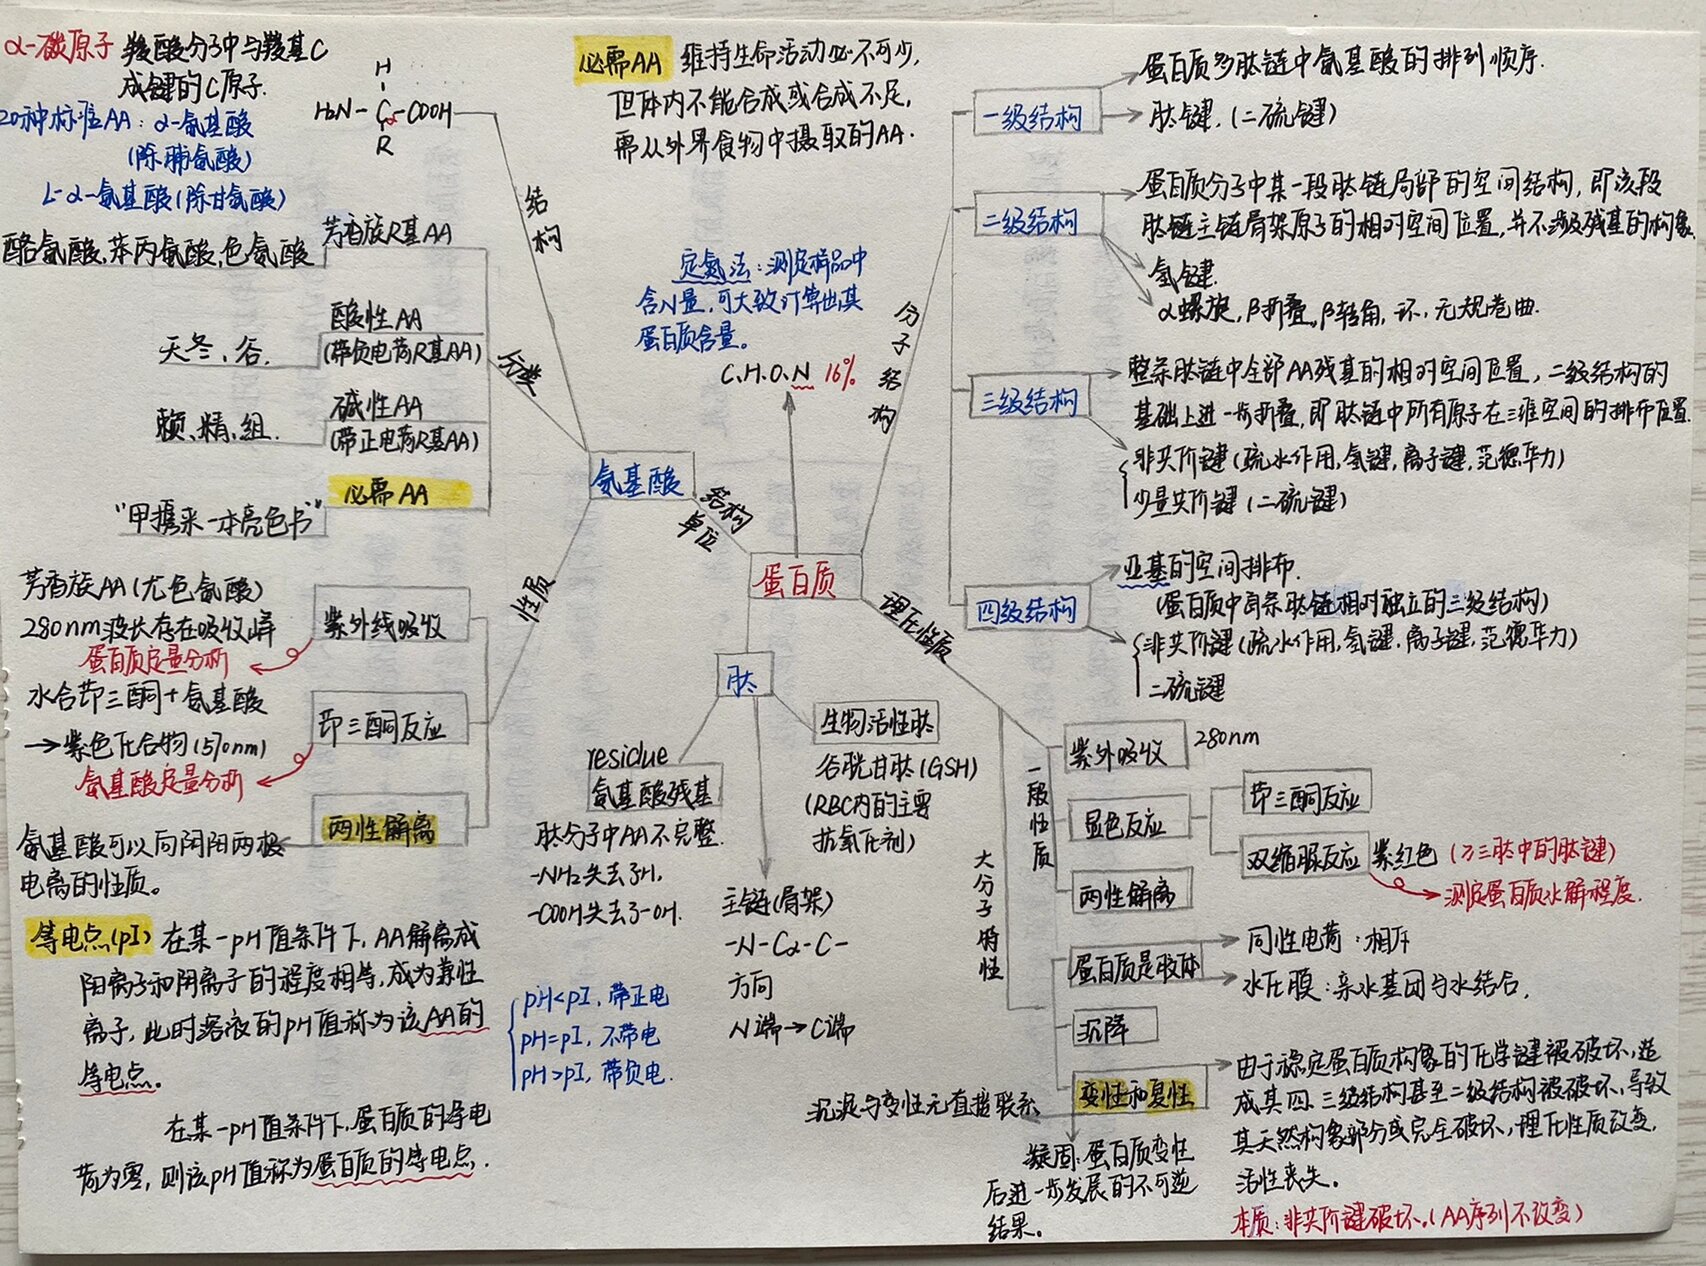 α-碳原子 羧酸分子中与羧基C
成键的C原子.
20种标准AA：α-氨基酸
(除脯氨酸)
L-α-氨基酸(除甘氨酸)
H
H₂N-Cα-COOH
R
结构
必需AA 维持生命活动必不可少,
但体内不能合成或合成不足,
需从外界食物中摄取的AA.
定氮法：测定样品中
含N量,可大致计算出其
蛋白质含量。
C.H.O.N 16%
分类
芳香族R基AA
酪氨酸,苯丙氨酸,色氨酸
酸性AA
(带负电荷R基AA)
天冬、谷.
碱性AA
(带正电荷R基AA)
赖、精、组.
必需AA
"甲携来一本亮色书"
氨基酸
结构
单位
蛋白质
性质
紫外线吸收
芳香族AA(尤色氨酸)
280nm波长存在吸收峰
蛋白质定量分析
茚三酮反应
水合茚三酮+氨基酸
→紫色化合物(570nm)
氨基酸定量分析
两性解离
氨基酸可以向阴阳两极
电离的性质。
等电点(pI) 在某一pH值条件下,AA解离成
阳离子和阴离子的程度相等,成为兼性
离子,此时溶液的pH值称为该AA的
等电点。
pH<pI,带正电
pH=pI,不带电
pH>pI,带负电.
在某一pH值条件下,蛋白质的净电
荷为零,则该pH值称为蛋白质的等电点.
肽
residue
氨基酸残基
肽分子中AA不完整.
-NH₂失去了H,
-COOH失去了-OH.
主链(骨架)
-N-Cα-C-
方向
N端→C端
生物活性肽
谷胱甘肽(GSH)
(RBC内的主要
抗氧化剂)
分子结构
一级结构
蛋白质多肽链中氨基酸的排列顺序.
肽键.(二硫键)
二级结构
蛋白质分子中某一段肽链局部的空间结构,即该段
肽链主链骨架原子的相对空间位置,并不涉及残基的构象.
氢键.
α螺旋,β折叠,β转角,环,无规卷曲.
三级结构
整条肽链中全部AA残基的相对空间位置,二级结构的
基础上进一步折叠,即肽链中所有原子在三维空间的排布位置.
非共价键(疏水作用,氢键,离子键,范德华力)
少量共价键(二硫键)
四级结构
亚基的空间排布.
(蛋白质中每条肽链相对独立的三级结构)
非共价键(疏水作用,氢键,离子键,范德华力)
二硫键
理化性质
一般性质
紫外吸收 280nm
显色反应
茚三酮反应
双缩脲反应 紫红色 (≥三肽中的肽键)
测定蛋白质水解程度.
两性解离
大分子特性
蛋白质是胶体
同性电荷：相斥
水化膜：亲水基团与水结合.
沉降
变性和复性
由于稳定蛋白质构象的化学键被破坏,造
成其四、三级结构甚至二级结构被破坏,导致
其天然构象部分或完全破坏,理化性质改变,
活性丧失。
本质：非共价键破坏.(AA序列不改变)
沉淀与变性无直接联系
凝固：蛋白质变性
后进一步发展的不可逆
结果。